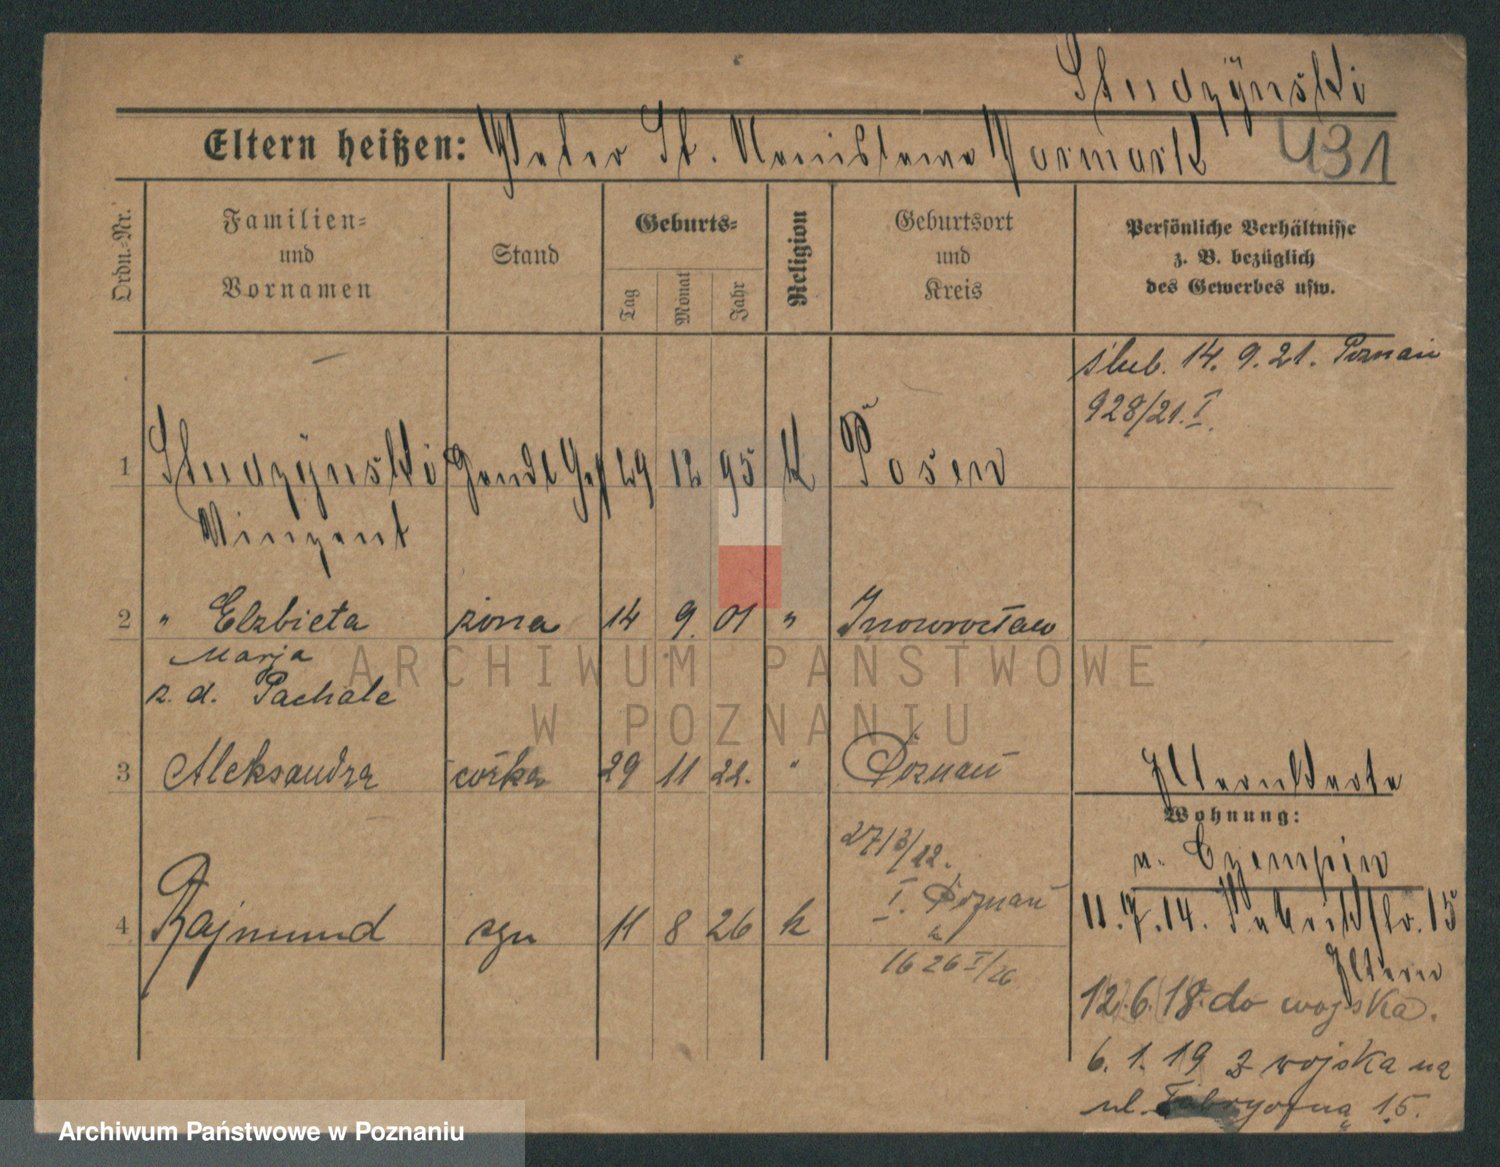 Studzÿnski
Eltern heißen: Peter St. Stanislawa Normark
431
Ordn.-Nr.
Familien- und Vornamen
Stand
Geburts-
Tag
Monat
Jahr
Religion
Geburtsort und Kreis
Persönliche Verhältnisse
z. B. bezüglich
des Gewerbes usw.
ślub. 14. 9. 21. Poznań
928/21. I.
1 Studzÿnski 29 12 95 K Posen
Vinzent
2 " Elzbieta żona 14 9. 01 " Inowrocław
Marja
z. d. Pachale
3 Aleksandra córka 29 11 22. " Poznań
Elternkarte
Wohnung:
v. Czempin
27/3/22.
I. Poznań
4 Rajmund syn 11 8 26 k
1626 I/26
11.7.14. Fabrikstr. 15
Eltern
12.6.18. do wojska.
6. 1. 19 z wojska na
ul. Fabryczną 15.
ARCHIWUM PAŃSTWOWE
W POZNANIU
Archiwum Państwowe w Poznaniu